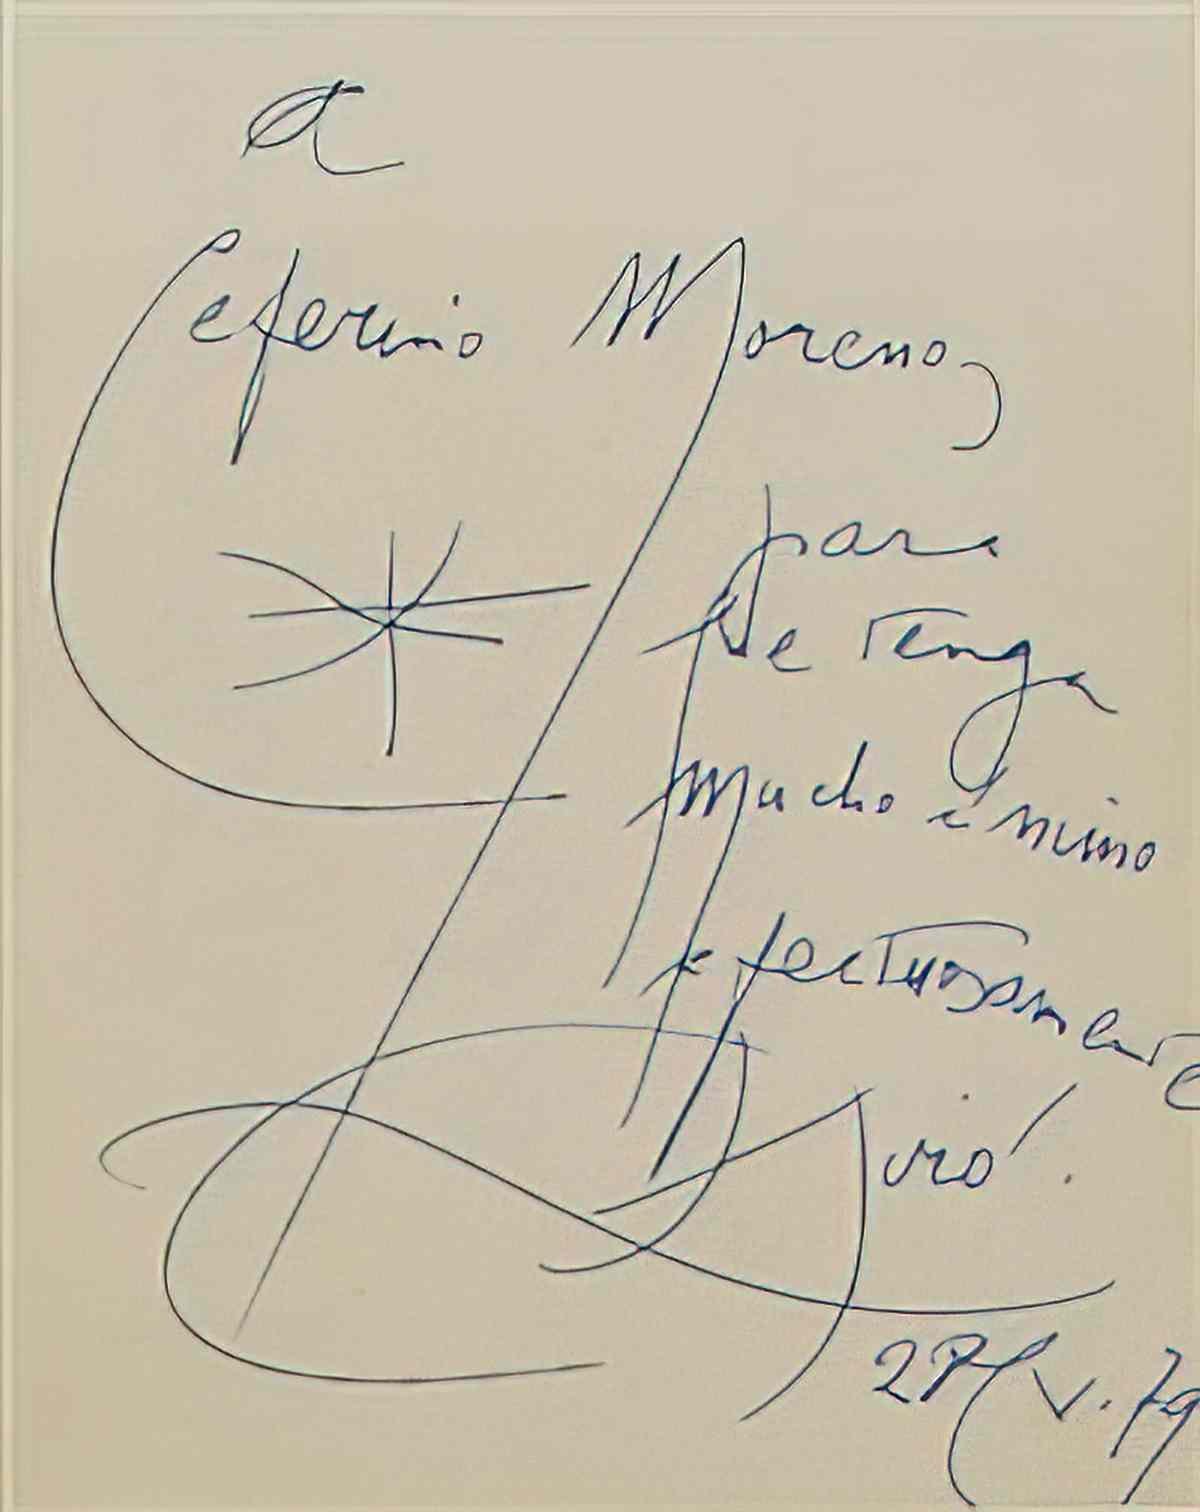 a
Ceferino Moreno,
para
que tenga
mucho ánimo
afectuosamente
Miró.
28/V.79